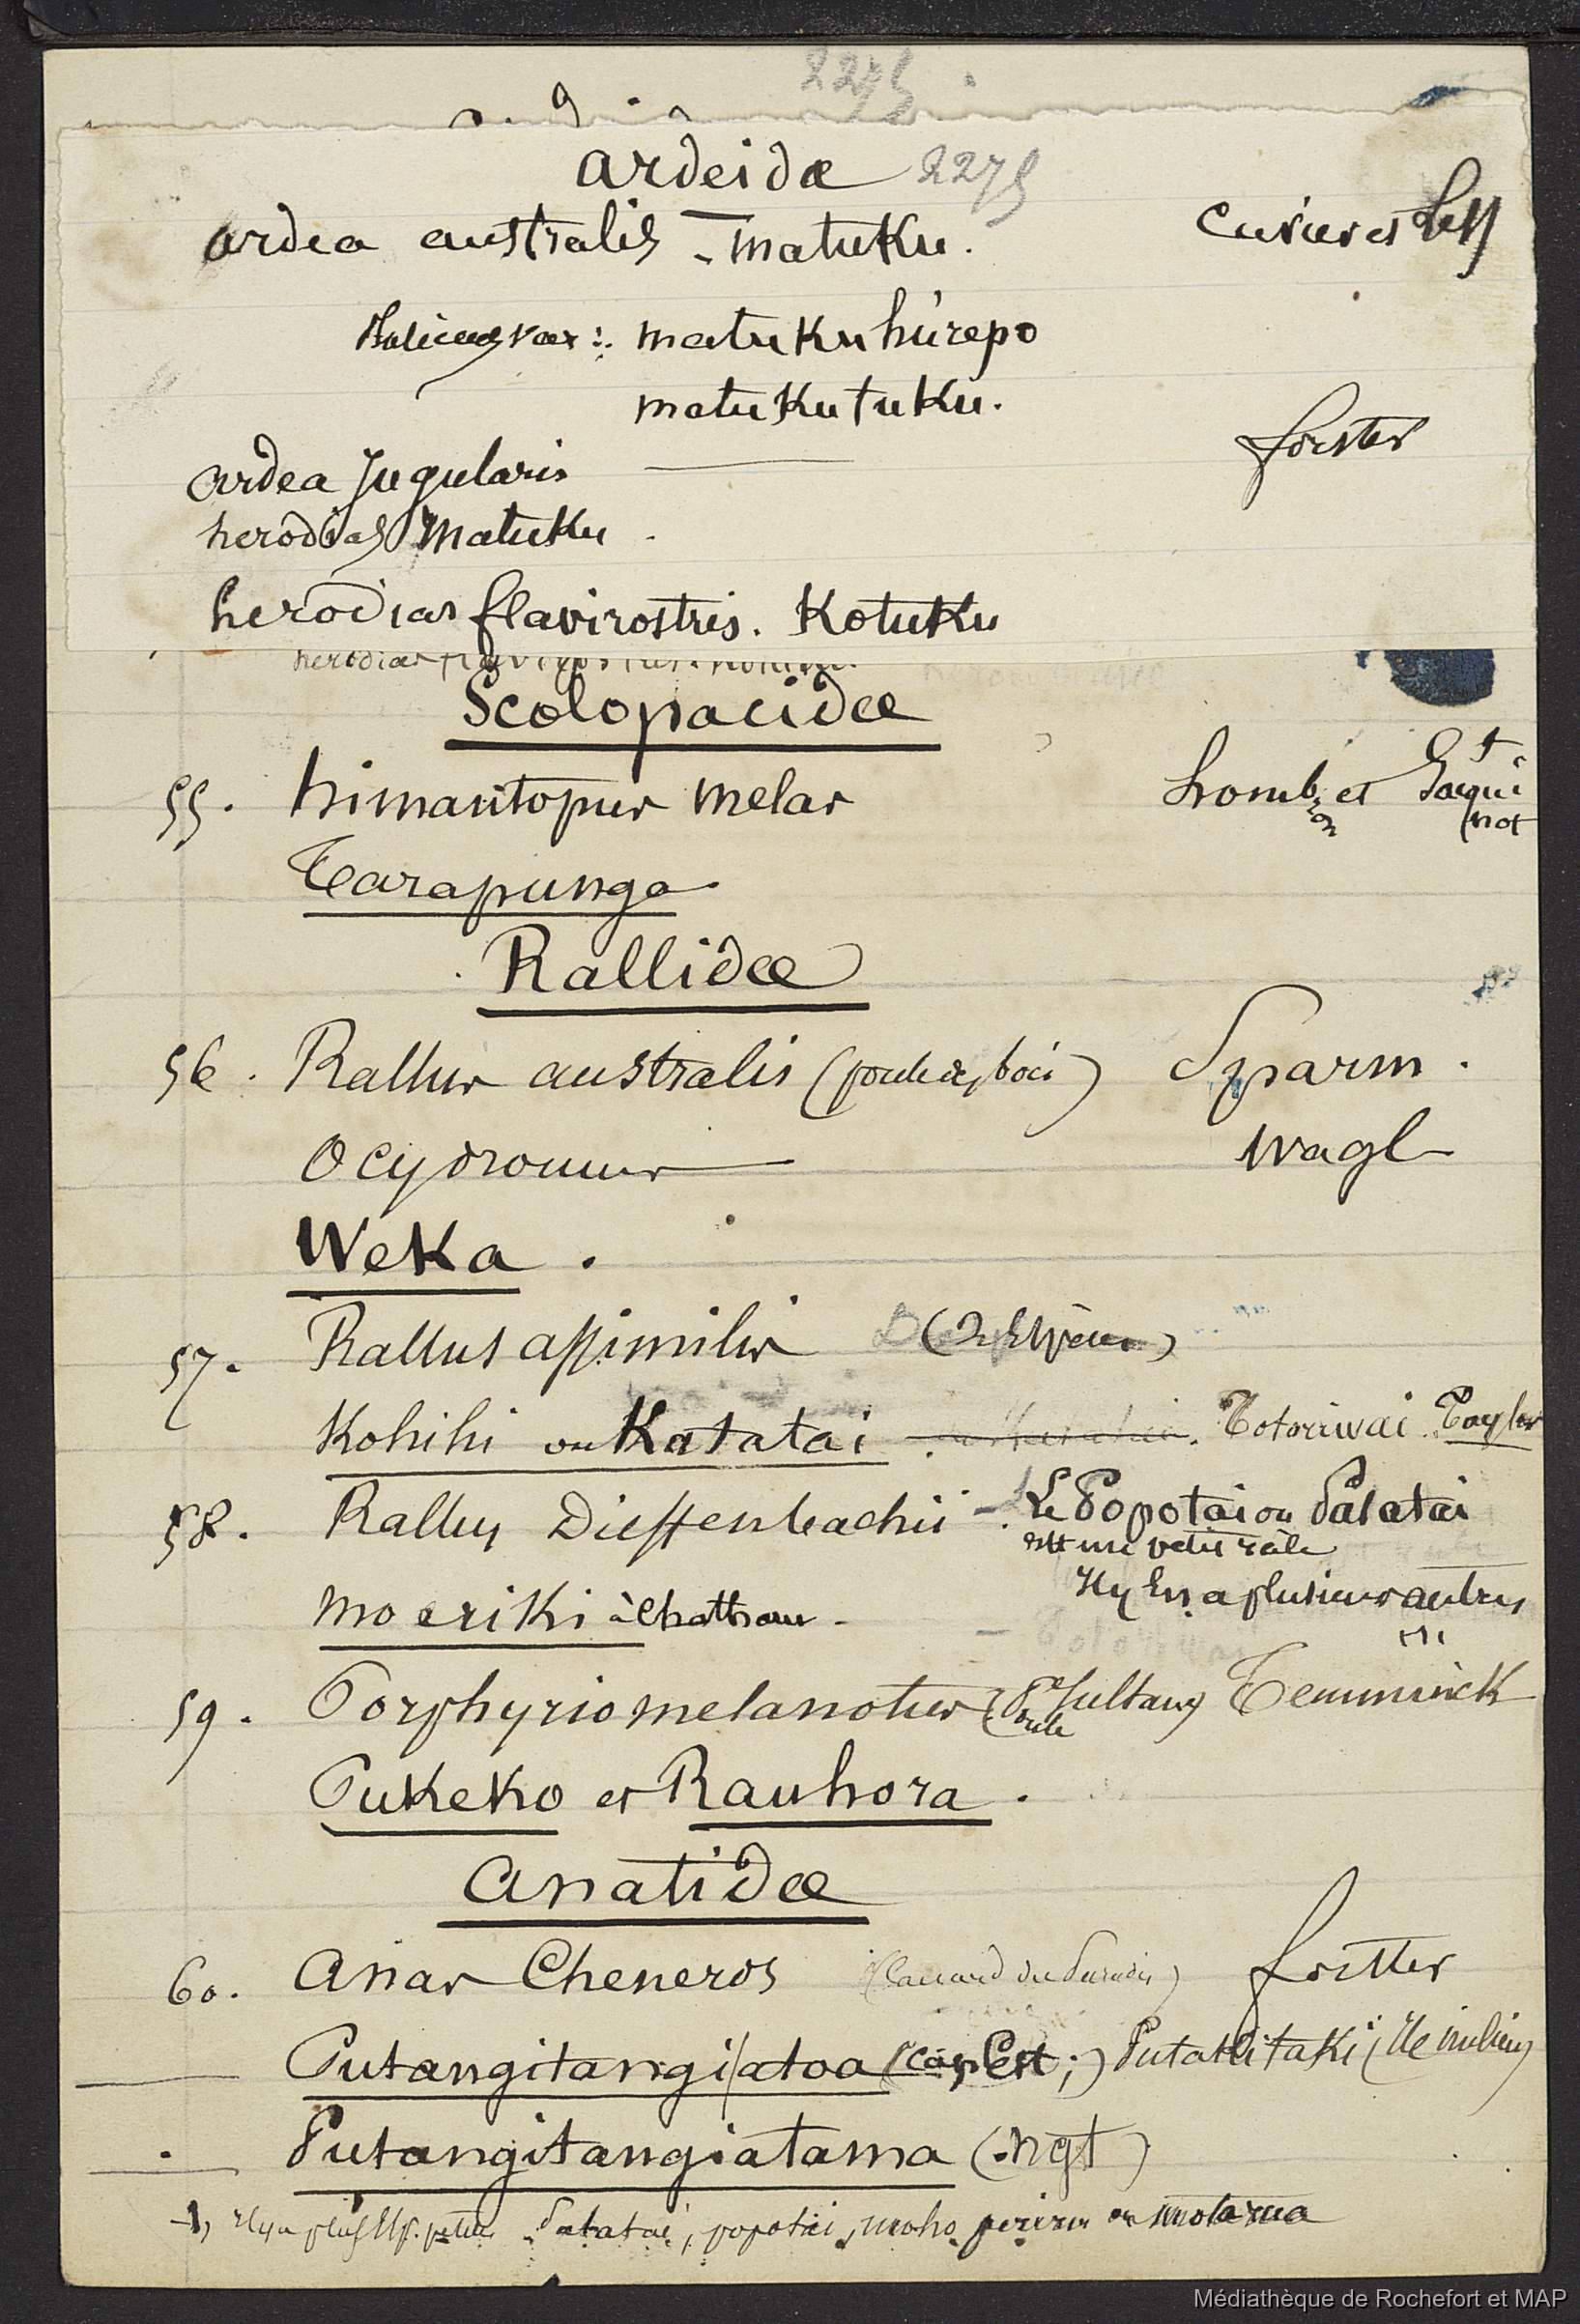 2275
ardeidæ 2275
ardea australis - matuku. Cuvier et Less
var : matukuhúrepo
matukutuku.
forster
ardea Jugularis
herodias Matuku
herodias flavirostris. Kotuku
Scolopacidæ
55. himantopus melas homb. et Jaqui
(not
Tarapunga
Rallidæ
56. Rallus australis (poule des bois) Sparm.
Ocydromus Wagl
Weka.
57. Rallus assimilis
Kohihi ou Katatai Totoriwai. Taylor
58. Rallus Dieffenbachii - Le Popotai ou Patatai
est une petite râle
Il y en a plusieurs autres
moeriki à Chatham -
(1)
59. Porphyrio melanotus (Poule Sultane) Temminck
Pukeko et Rauhora.
Anatidæ
60. Anas Cheneros (Canard du Paradis) forster
Putangitangi/atoa (cap Est;) Putakitaki (île milieu)
Putangitangiatama (ngt)
1, Il y a plus. esp. petites Patatai, popotai, moho, ou motarua
Médiathèque de Rochefort et MAP